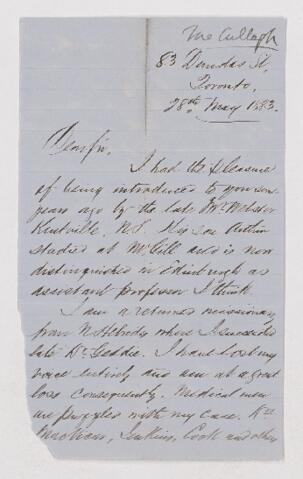 McCullagh
83 Dundas St,
Toronto,
28th May 1883.
Dear Sir,
I had the pleasure
of being introduced to you some
years ago by the late Dr. Webster
Kentville, N.S. His son
studied at McGill and is now
distinguished in Edinburgh as
assistant professor I think
I am a returned missionary
from N. Hebrides where I succeeded
late Dr. Geddie. I have lost my
voice entirely and am at a great
loss consequently. Medical men
are puzzled with my case. Drs
Jenkins, Cook and others